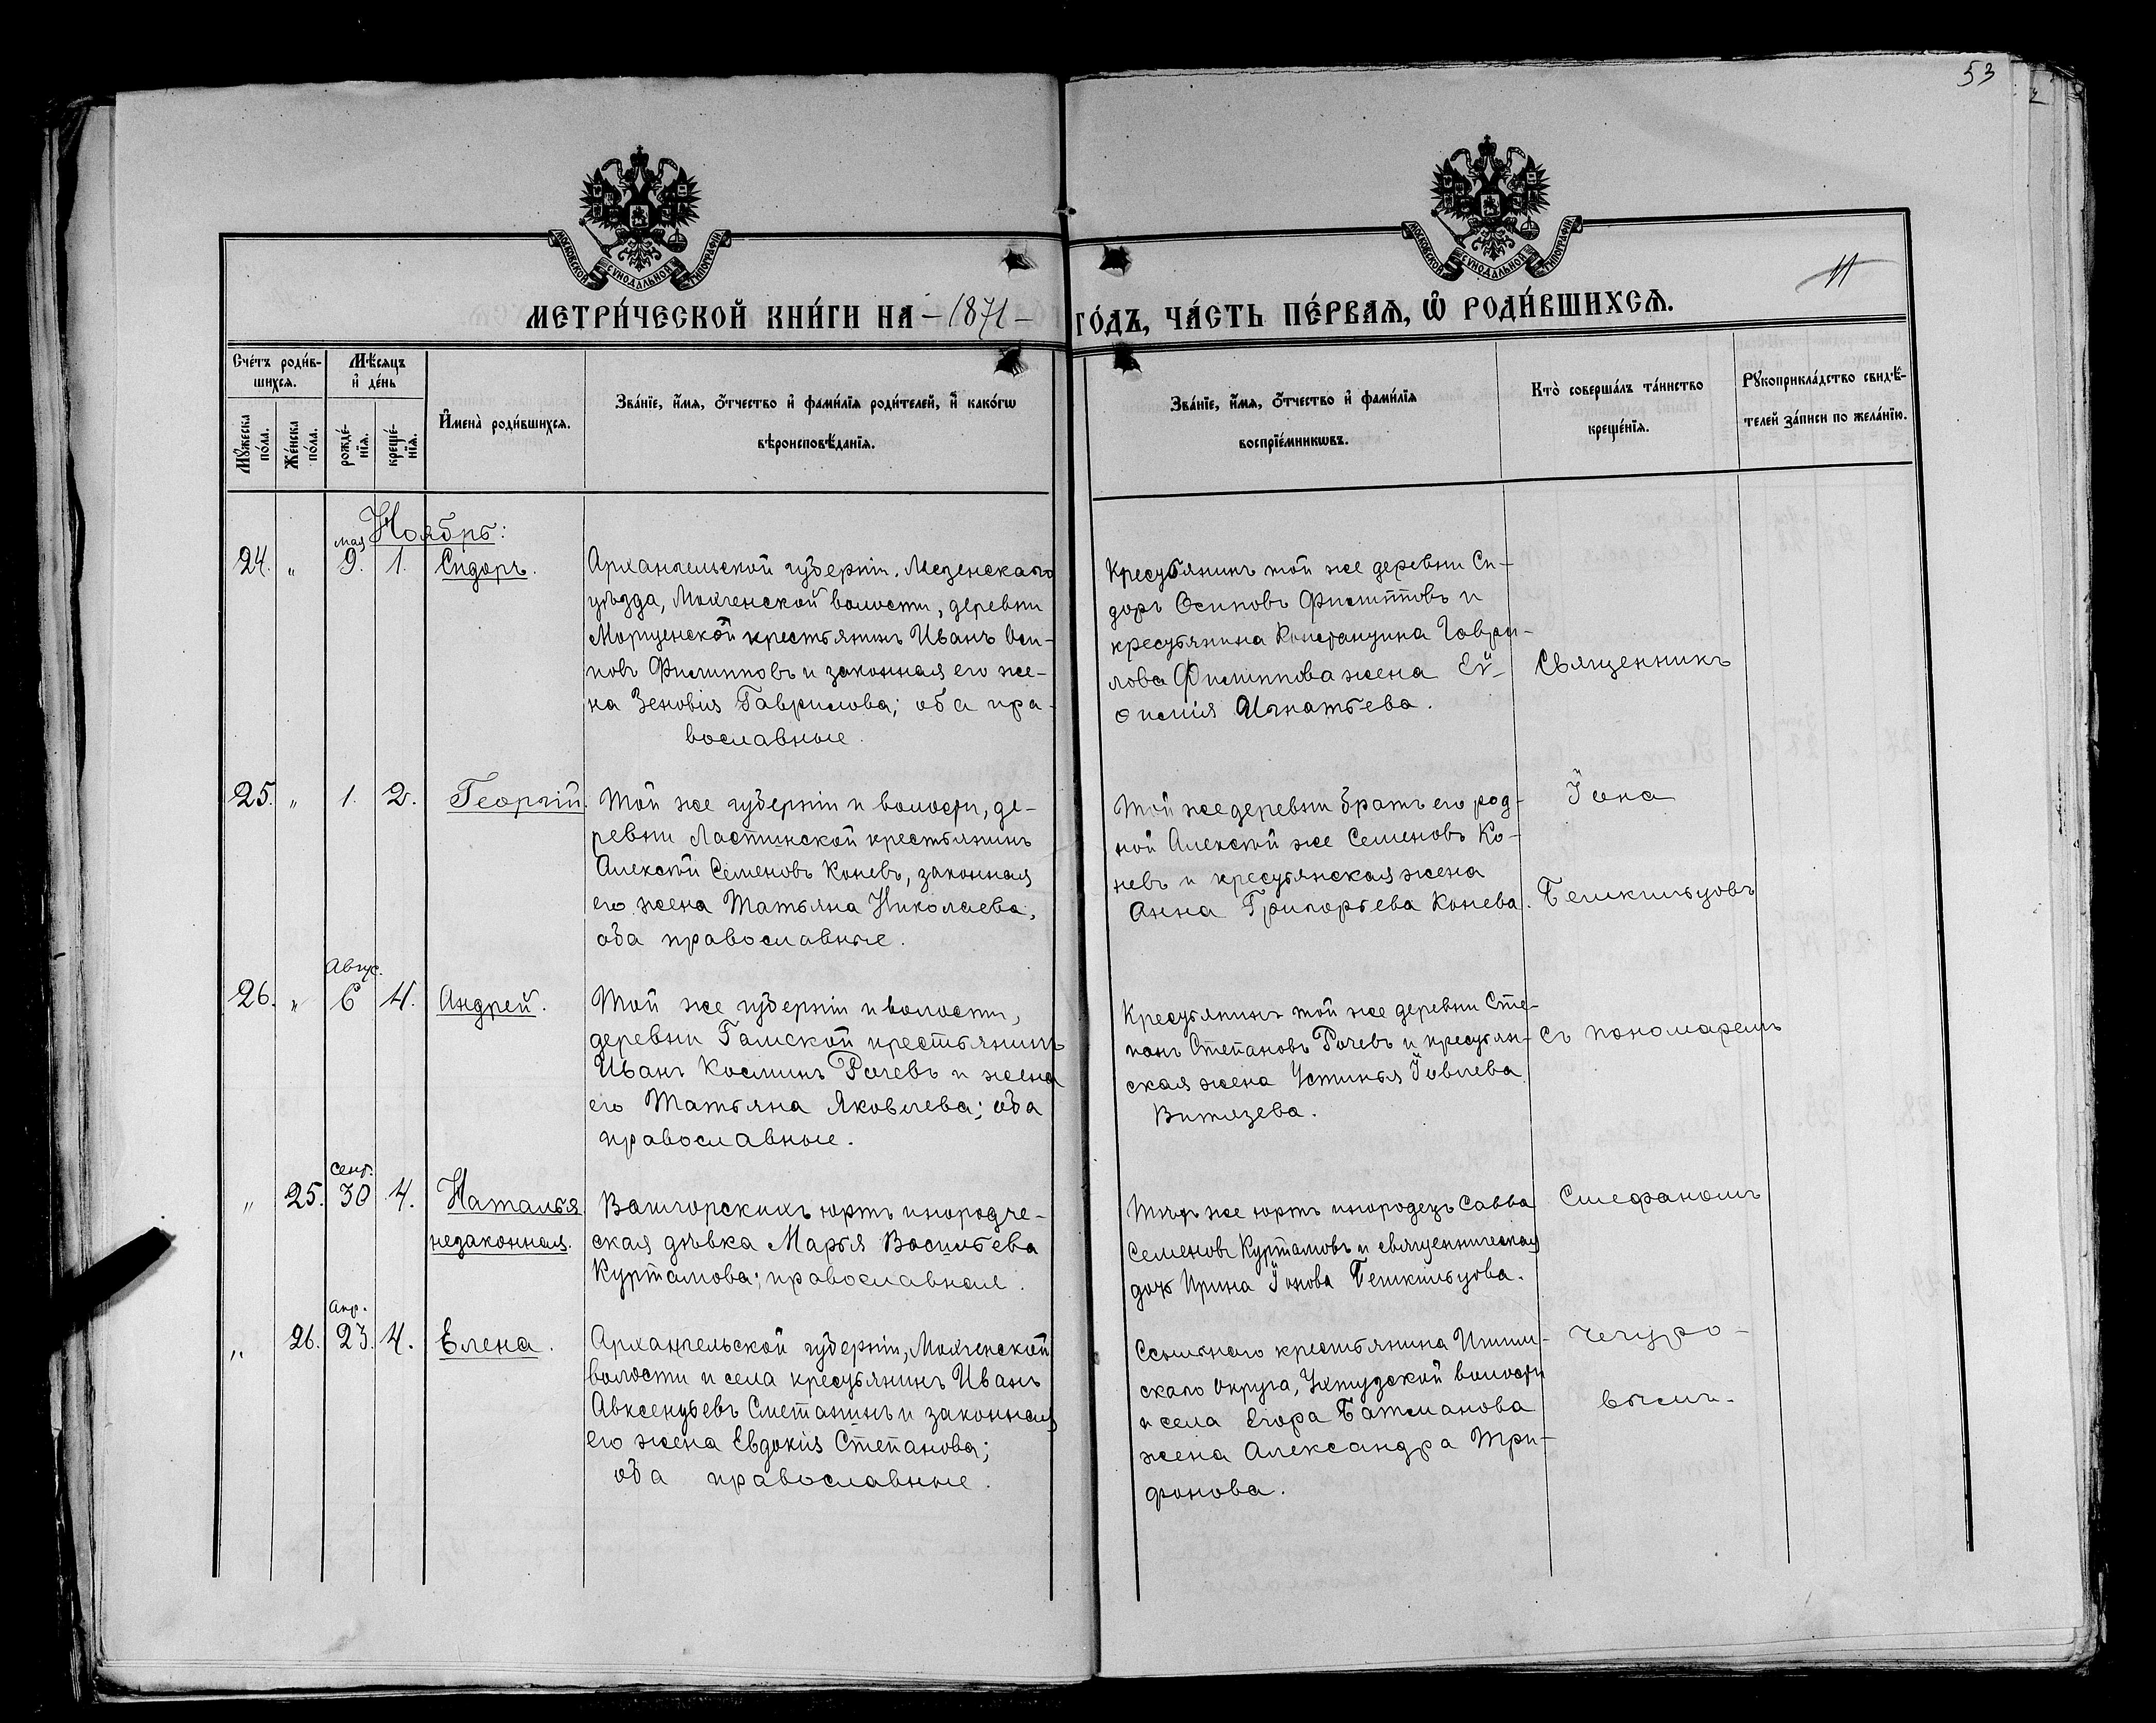 53
11
МОСКОВСКОЙ СѴНОДАЛЬНОЙ ТИПОГРАФІИ
МОСКОВСКОЙ СѴНОДАЛЬНОЙ ТИПОГРАФІИ
МЕТРИ́ЧЕСКОЙ КНИ́ГИ НА - 1871 - ГО́ДЪ, ЧА́СТЬ ПЕ́РВАѦ, Ѡ҆ РОДИ́ВШИХСѦ.
Сче́тъ роди́в-
шихсѧ.
Мꙋ́жеска по́ла.
Же́нска по́ла.
Мѣ́сяцъ и҆ де́нь
рожде́-нїѧ.
креще́-нїѧ.
И҆мена̀ роди́вшихсѧ.
Зва́нїе, и҆́мѧ, ѻ҆́тчество и҆ фами́лїѧ роди́телей, и҆ како́гѡ
вѣроисповѣ́данїѧ.
Зва́нїе, и҆́мѧ, ѻ҆́тчество и҆ фами́лїѧ
воспрїе́мникѡвъ.
Кто̀ соверша́лъ та́инство
креще́нїѧ.
Рꙋкоприкла́дство свидѣ́-
телей за́писи по жела́нїю.
Ноябрь:
мая
24. " 9. 1. Сидоръ.
Архангельской губерніи, Мезенскаго
уѣзда, Мохченской волости, деревни
Мошьюгской крестьянинъ Иванъ Оси-
повъ Филипповъ и законная его же-
на Зеновія Гаврилова; оба пра-
вославные.
Крестьянинъ той же деревни Си-
доръ Осиповъ Филипповъ и
крестьянина Константина Гаври-
лова Филиппова жена Еѵ-
ѳимія Игнатьева.
Священникъ
25. " 1. 2. Георгій.
Той же губерніи и волости, де-
ревни Ластинской крестьянинъ
Алексѣй Семеновъ Коневъ, законная
его жена Татьяна Николаева;
оба православные.
Той же деревни братъ его род-
ной Алексѣй же Семеновъ Ко-
невъ и крестьянская жена
Анна Григорьева Конева.
Іона
Тешкильцовъ
Авгус.
26. " 6 4. Андрей.
Той же губерніи и волости,
деревни Гамской крестьянинъ
Иванъ Косминъ Рочевъ и жена
его Татьяна Яковлева; оба
православные.
Крестьянинъ той же деревни Сте-
панъ Степановъ Рочевъ и крестьян-
ская жена Устинья Іовлева
Витязева.
съ пономаремъ
Сент.
" 25. 30 4. Наталья
незаконная.
юртъ инородче-
ская дѣвка Марья Васильева
Куртамова; православная.
Тѣхъ же юртъ инородецъ Савва
Семеновъ Куртамовъ и священническая
дочь Ирина Іонова Тешкильцова.
Стефаномъ
Апр.
" 26. 23. 4. Елена.
Архангельской губерніи, Мохченской
волости и села крестьянинъ Иванъ
Авксентьевъ Сметанинъ и законная
его жена Евдокія Степанова;
оба православные.
Ссыльнаго крестьянина Ишим-
скаго округа, волости
и села Егора Батманова
жена Александра Три-
фонова.
чегуро-
вымъ.